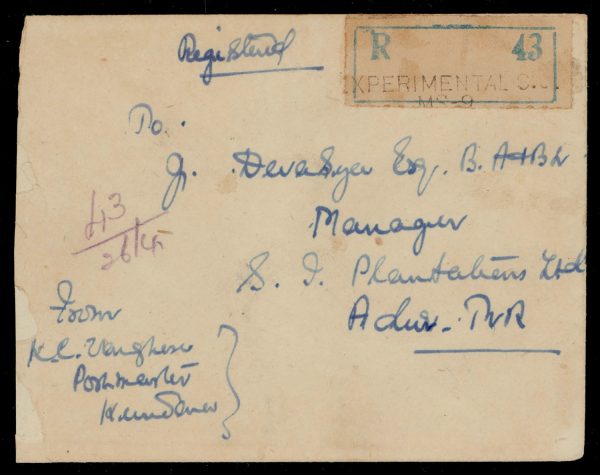 Registered
R 43
XPERIMENTAL S.O.
MS-9
To.
J. Devasya Esq. B.A & B.L
Manager
S. I. Plantations Ltd
Adur - TVR
43
26/4
From
K.C. Varghese
Postmaster